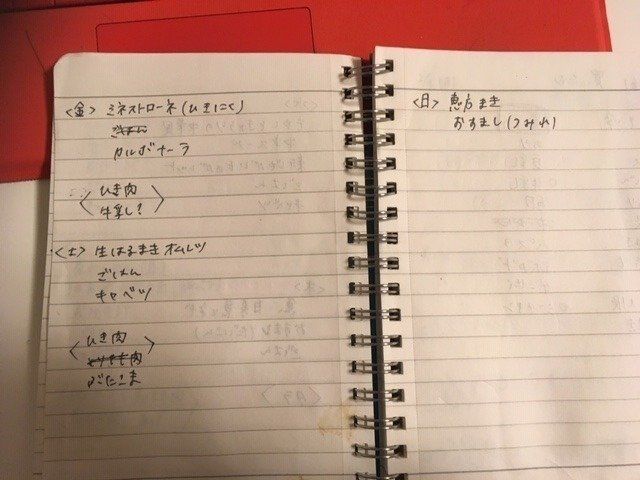 <金> ミネストローネ(ひきにく)
ごはん
カルボナーラ
<ひき肉
牛乳し?>
<土> 生はるまき オムレツ
ごはん
キャベツ
<ひき肉
とりもも肉
ぶたこま>
<日> 恵方まき
おすまし(つみれ)